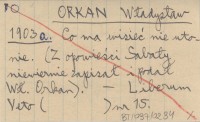 ORKAN Władysław
1903 a. Co ma wisieć nie uto-
nie. (Z opowieści Sabały
niewiernie zapisał i podał
Wł. Orkan). — Liberum
Veto ( ) nr 15.